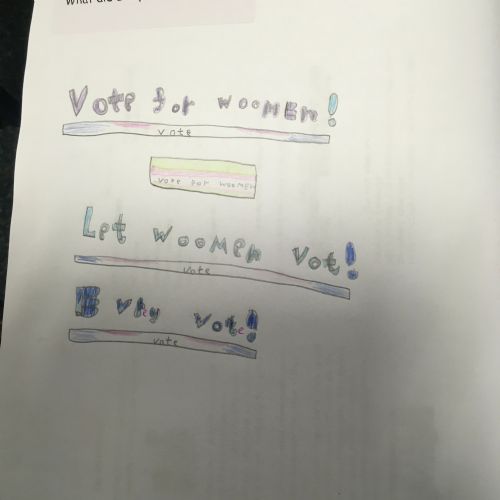 Vote for woomen!
vote
vote for woomen
Let woomen Vot!
vote
Evey Vote!
vote